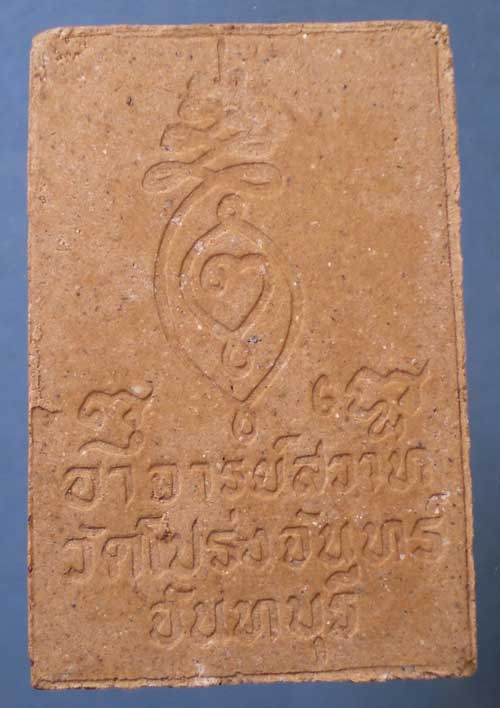 อาจารย์สวาท
วัดโป่งจันทร์
จันทบุรี